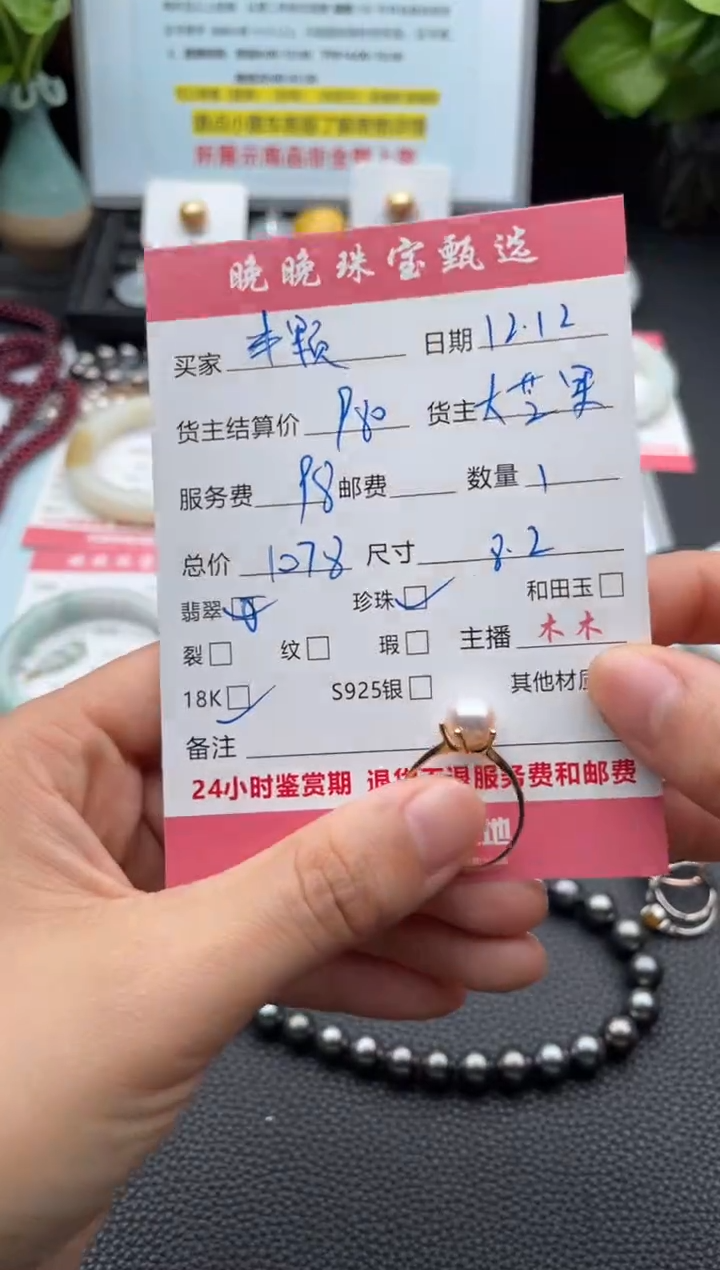 晚晚珠宝甄选
买家 半颗 日期 12.12
货主结算价 980 货主 大芒果
服务费 98 邮费 数量 1
总价 1078 尺寸 8.2
翡翠 珍珠 和田玉
裂 纹 瑕 主播 木木
18K S925银 其他材质
备注
24小时鉴赏期 退货不退服务费和邮费
地